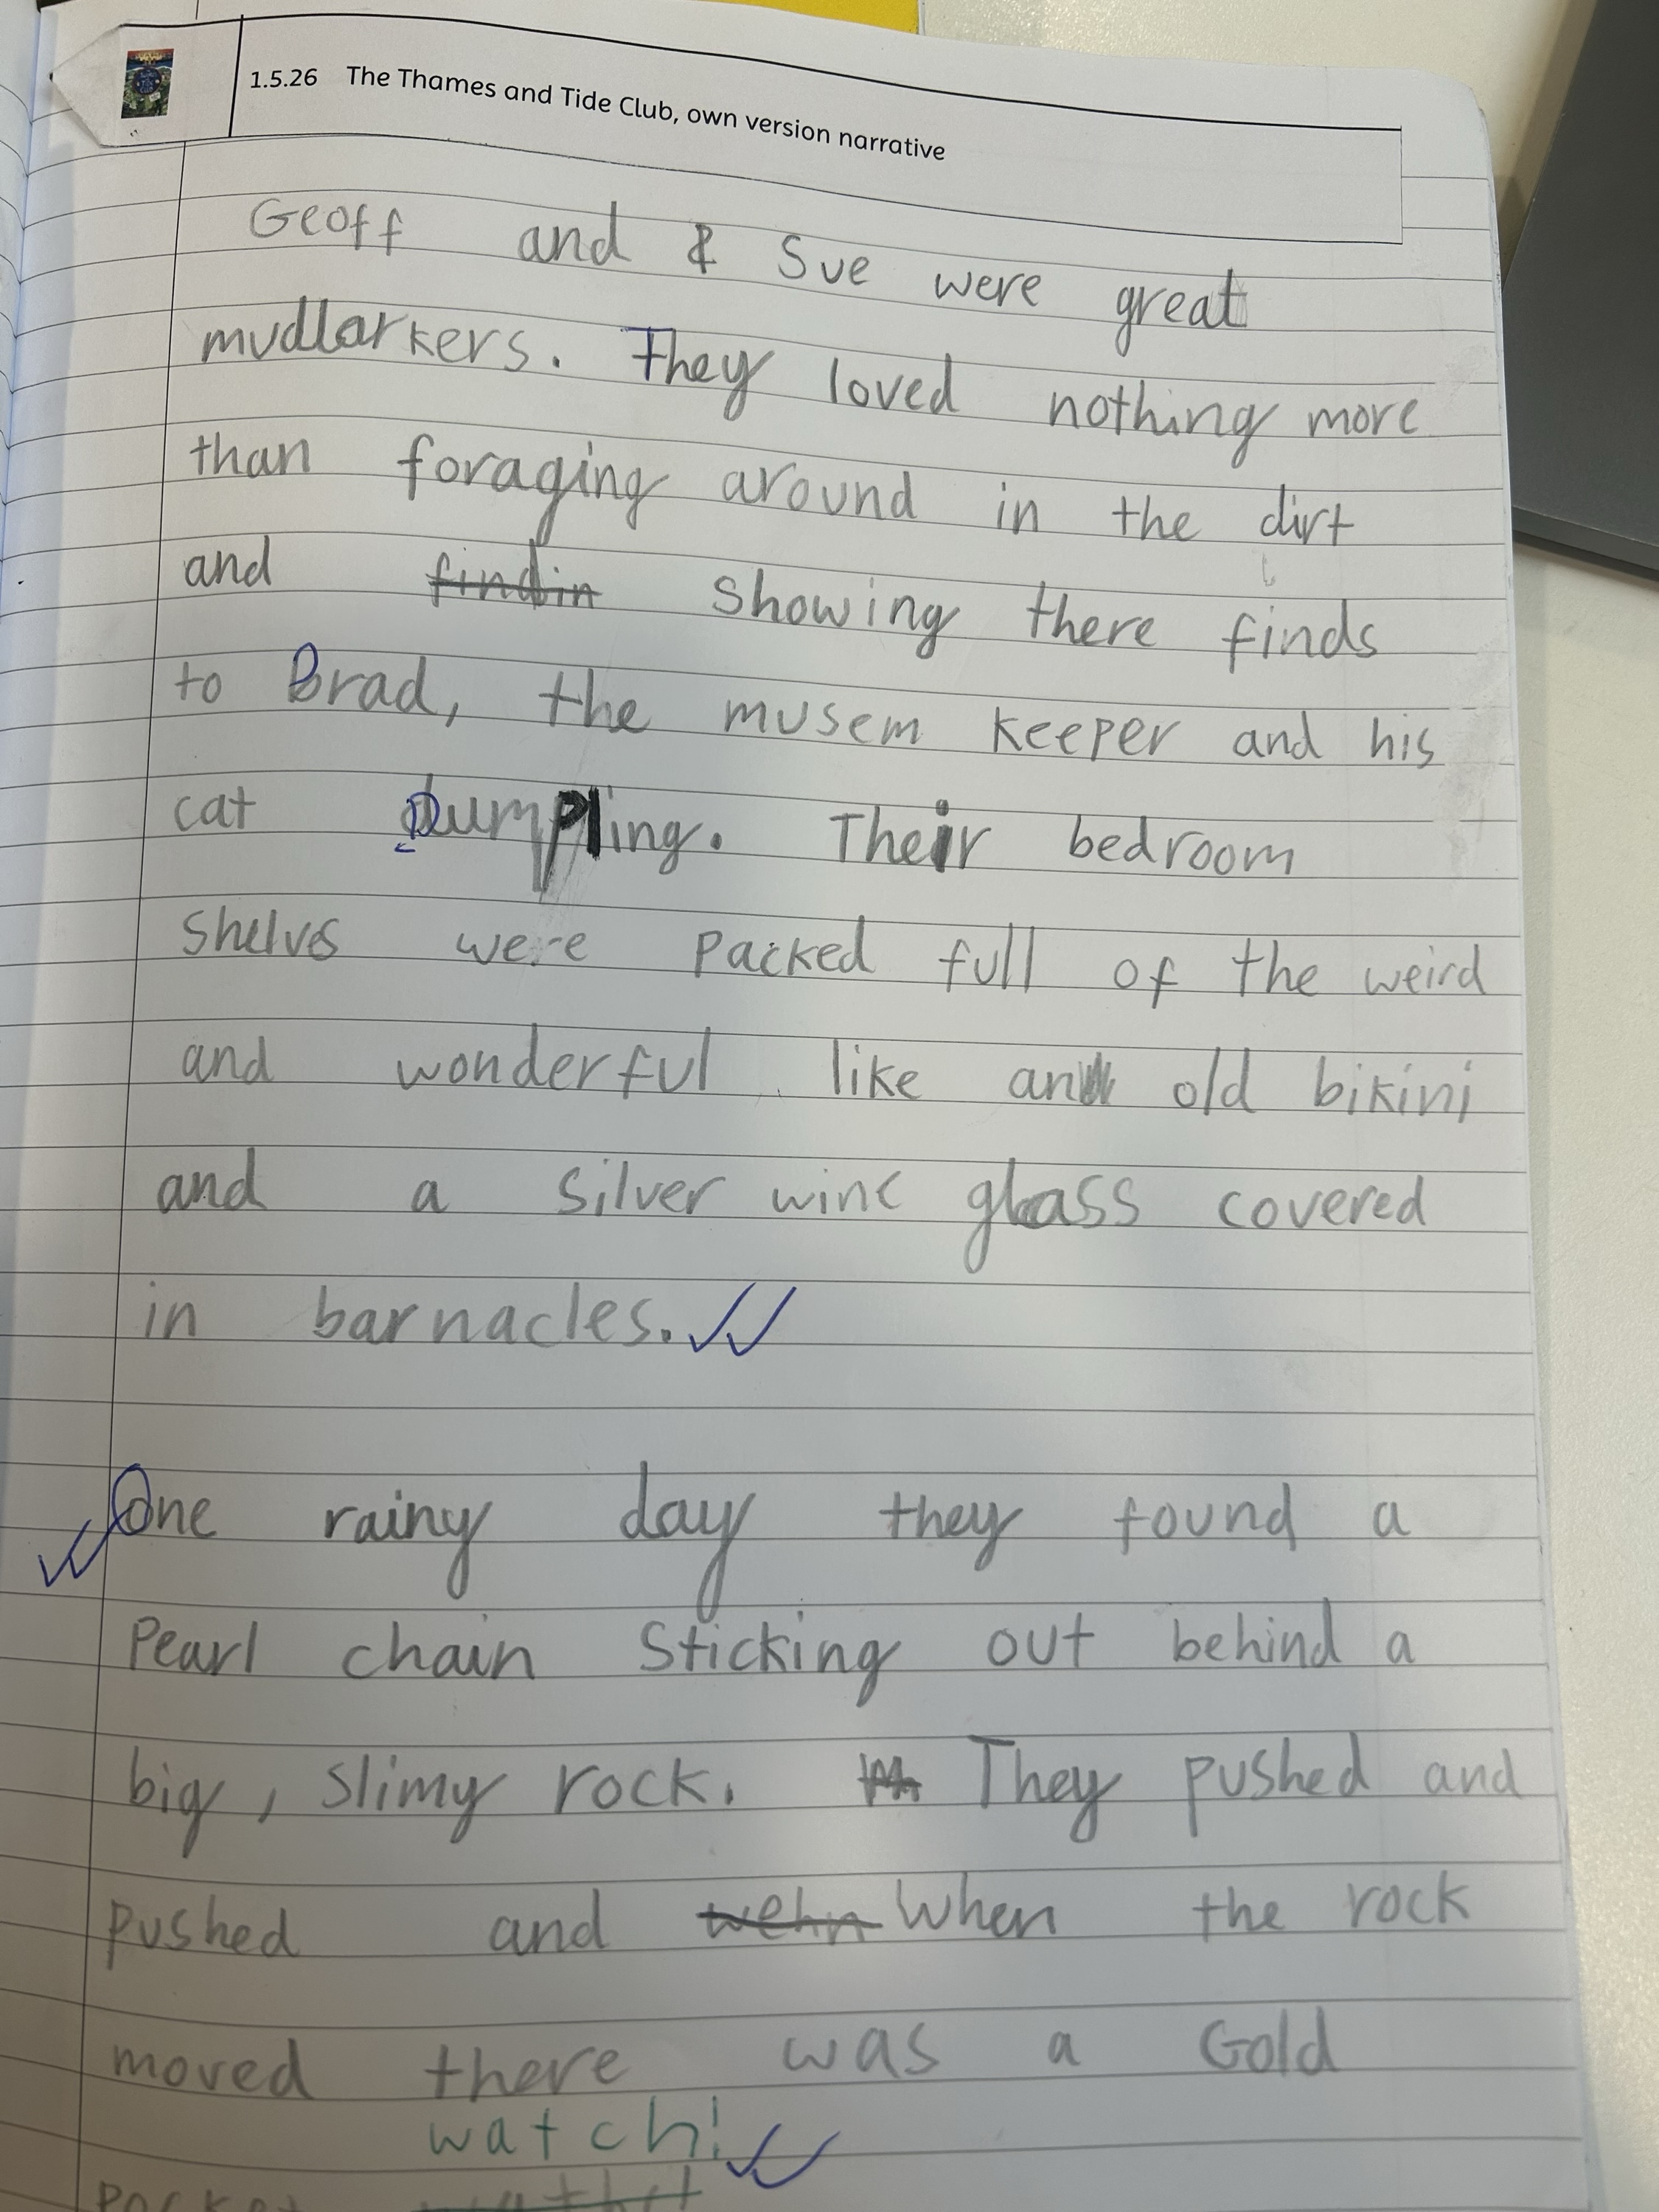 1.5.26 The Thames and Tide Club, own version narrative
Geoff and & Sue were great
mudlarkers. They loved nothing more
than foraging around in the dirt
and findin showing there finds
to Brad, the musem keeper and his
cat Dumpling. Their bedroom
shelves were packed full of the weird
and wonderful like an old bikini
and a silver wine glass covered
in barnacles.
One rainy day they found a
Pearl chain sticking out behind a
big, slimy rock. They pushed and
pushed and wehn when the rock
moved there was a Gold
watch!
Pocket